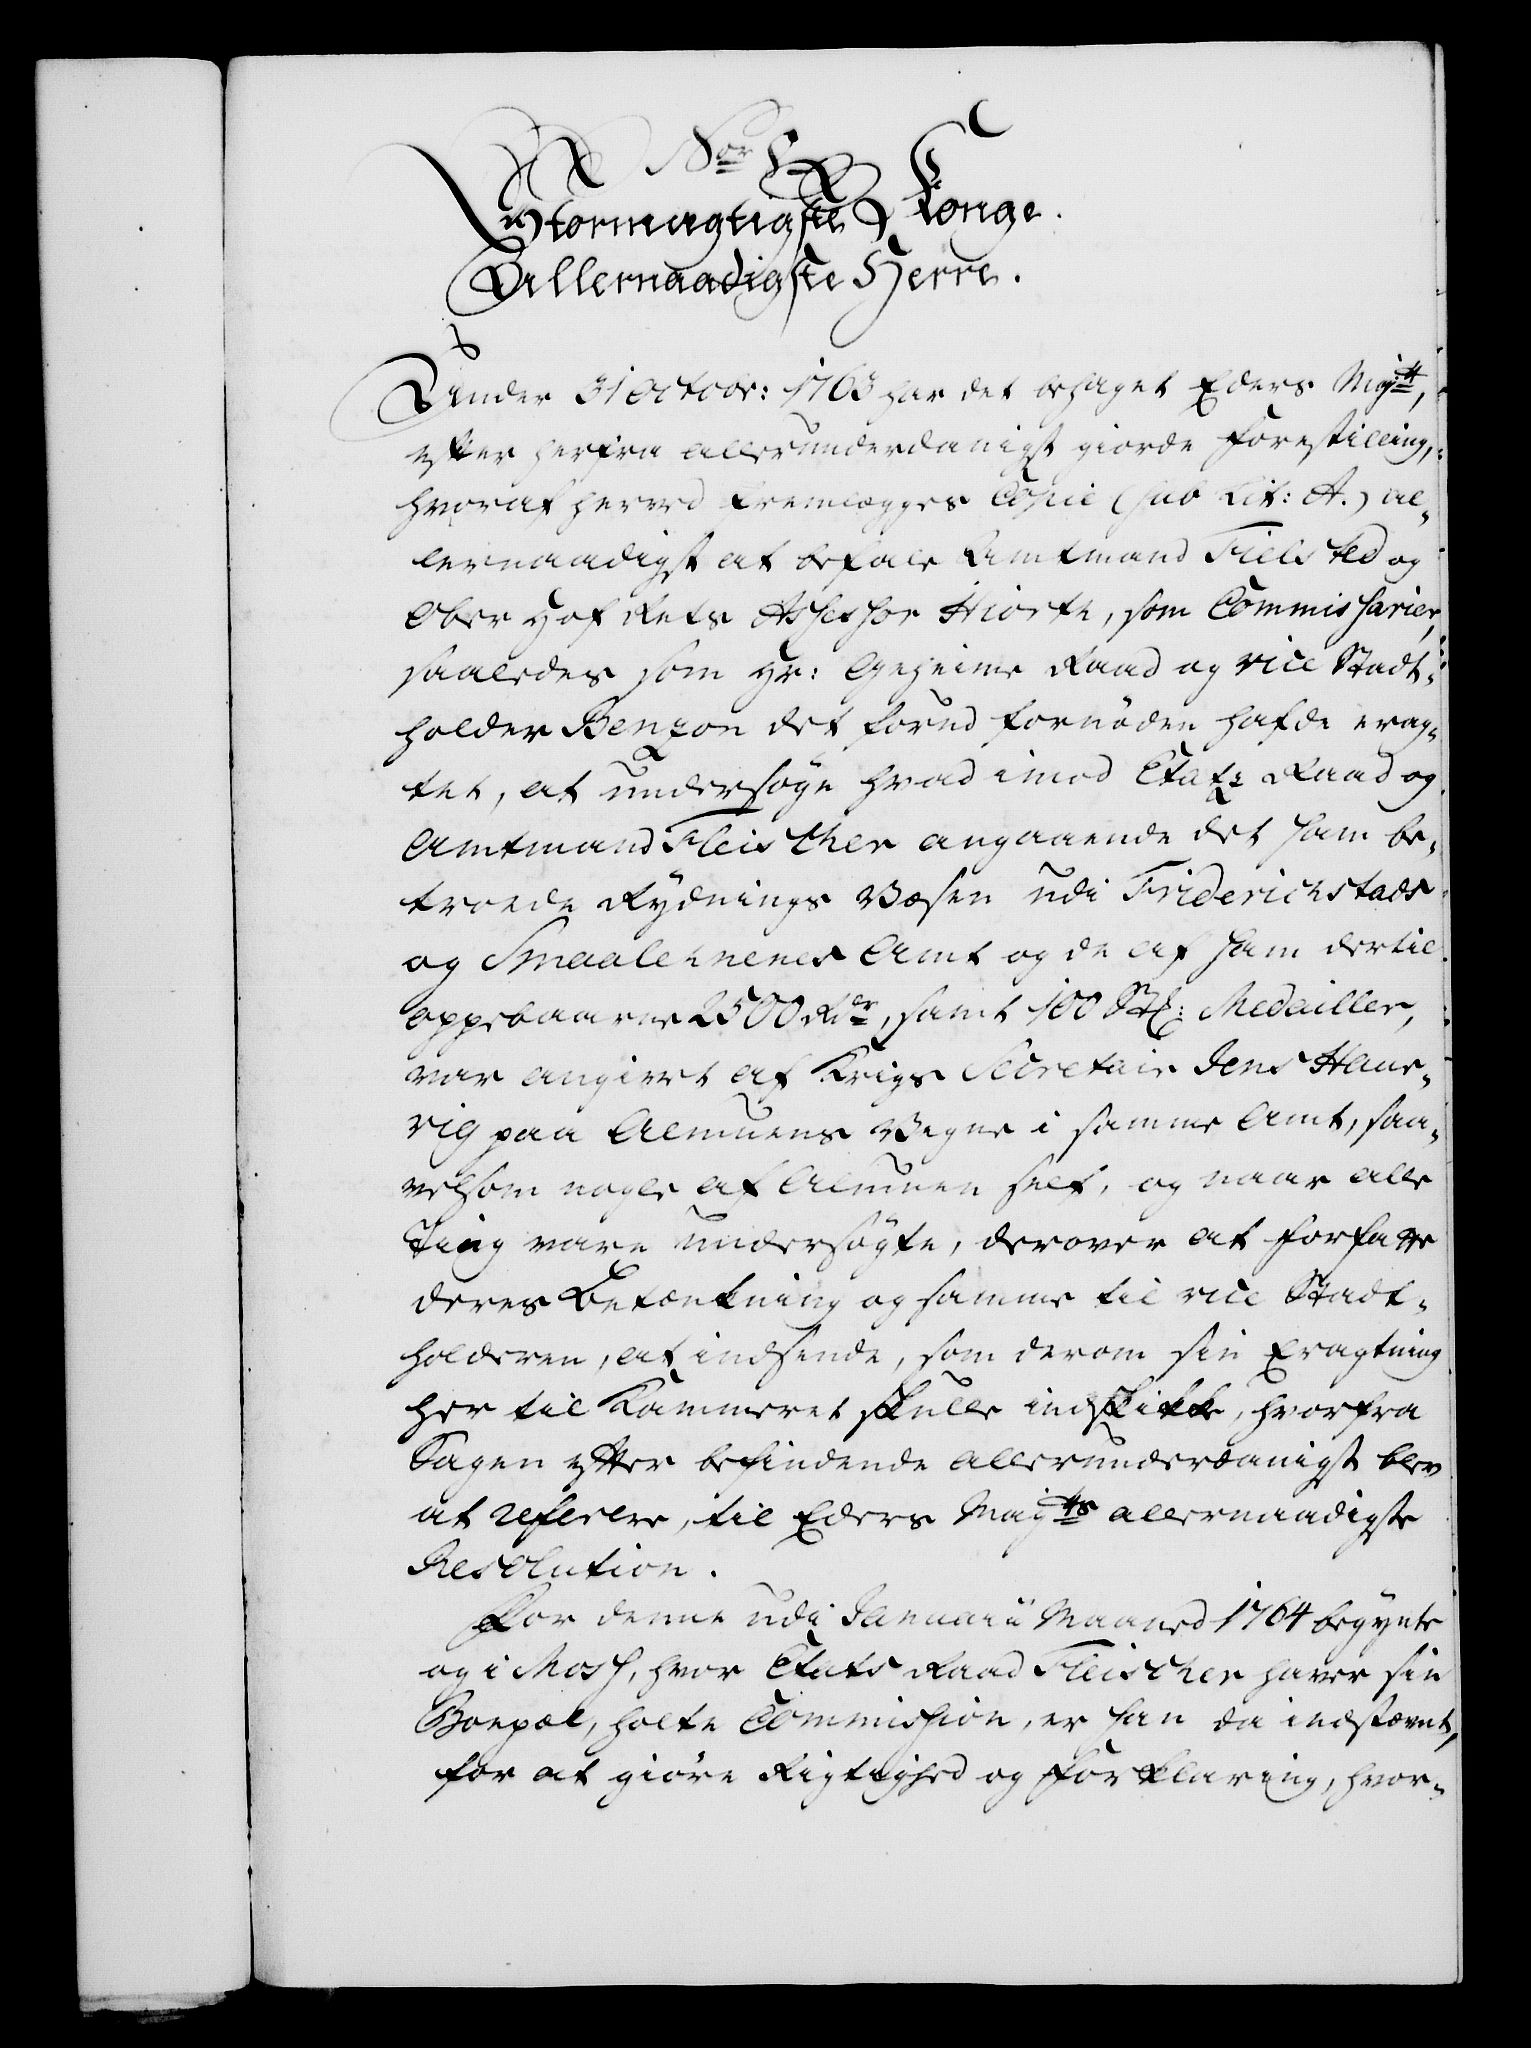 Nor 1
Stormægtigste Konge.
Allernaadigste Herre.
Under 31 octobr: 1763 har det behaget Eders Majtt,
efter herfra allerunderdanigst giorde Forestilling,
hvoraf herved fremlægges Copie (sub Lit: A.) al-
lernaadigst at befale Amtmand Fielsted og
Ober Hof Rets Assessor Hiorth, som Commissarier,
saaledes som Hr: Geheime Raad og vice Stadt-
holder Benzon det forud fornöden hafde erag-
tet, at undersøge hvad imod Etats Raad og
Amtmand Fleischer angaaende det ham be-
troede Rydnings Væsen udi Friderichstads
og Smaalehnenes Amt og de af ham dertil
oppebaarne 2500 Rdr, samt 100 Stk: Medailler,
var angivet af Krigs Secretair Jens Hane-
vig paa Almuens Vegne i samme Amt, saa-
velsom nogle af Almuen self, og naar alle
Ting vare undersøgte, derover at forfatte
deres Betænkning og samme til vice Stadt-
holderen, at indsende, som derom sin Eragtning
her til Kammeret skulle indskikke, hvorfra
Sagen efter befindende allerunderdanigst blev
at referere, til Eders Majts allernaadigste
Resolution.
For denne udi Januarii Maaned 1764 begynte
og i Moss, hvor Etats Raad Fleischer haver sin
Boepæl, holte Commission, er han da indstævnt,
for at giöre Rigtighed og Forklaring, hvor-